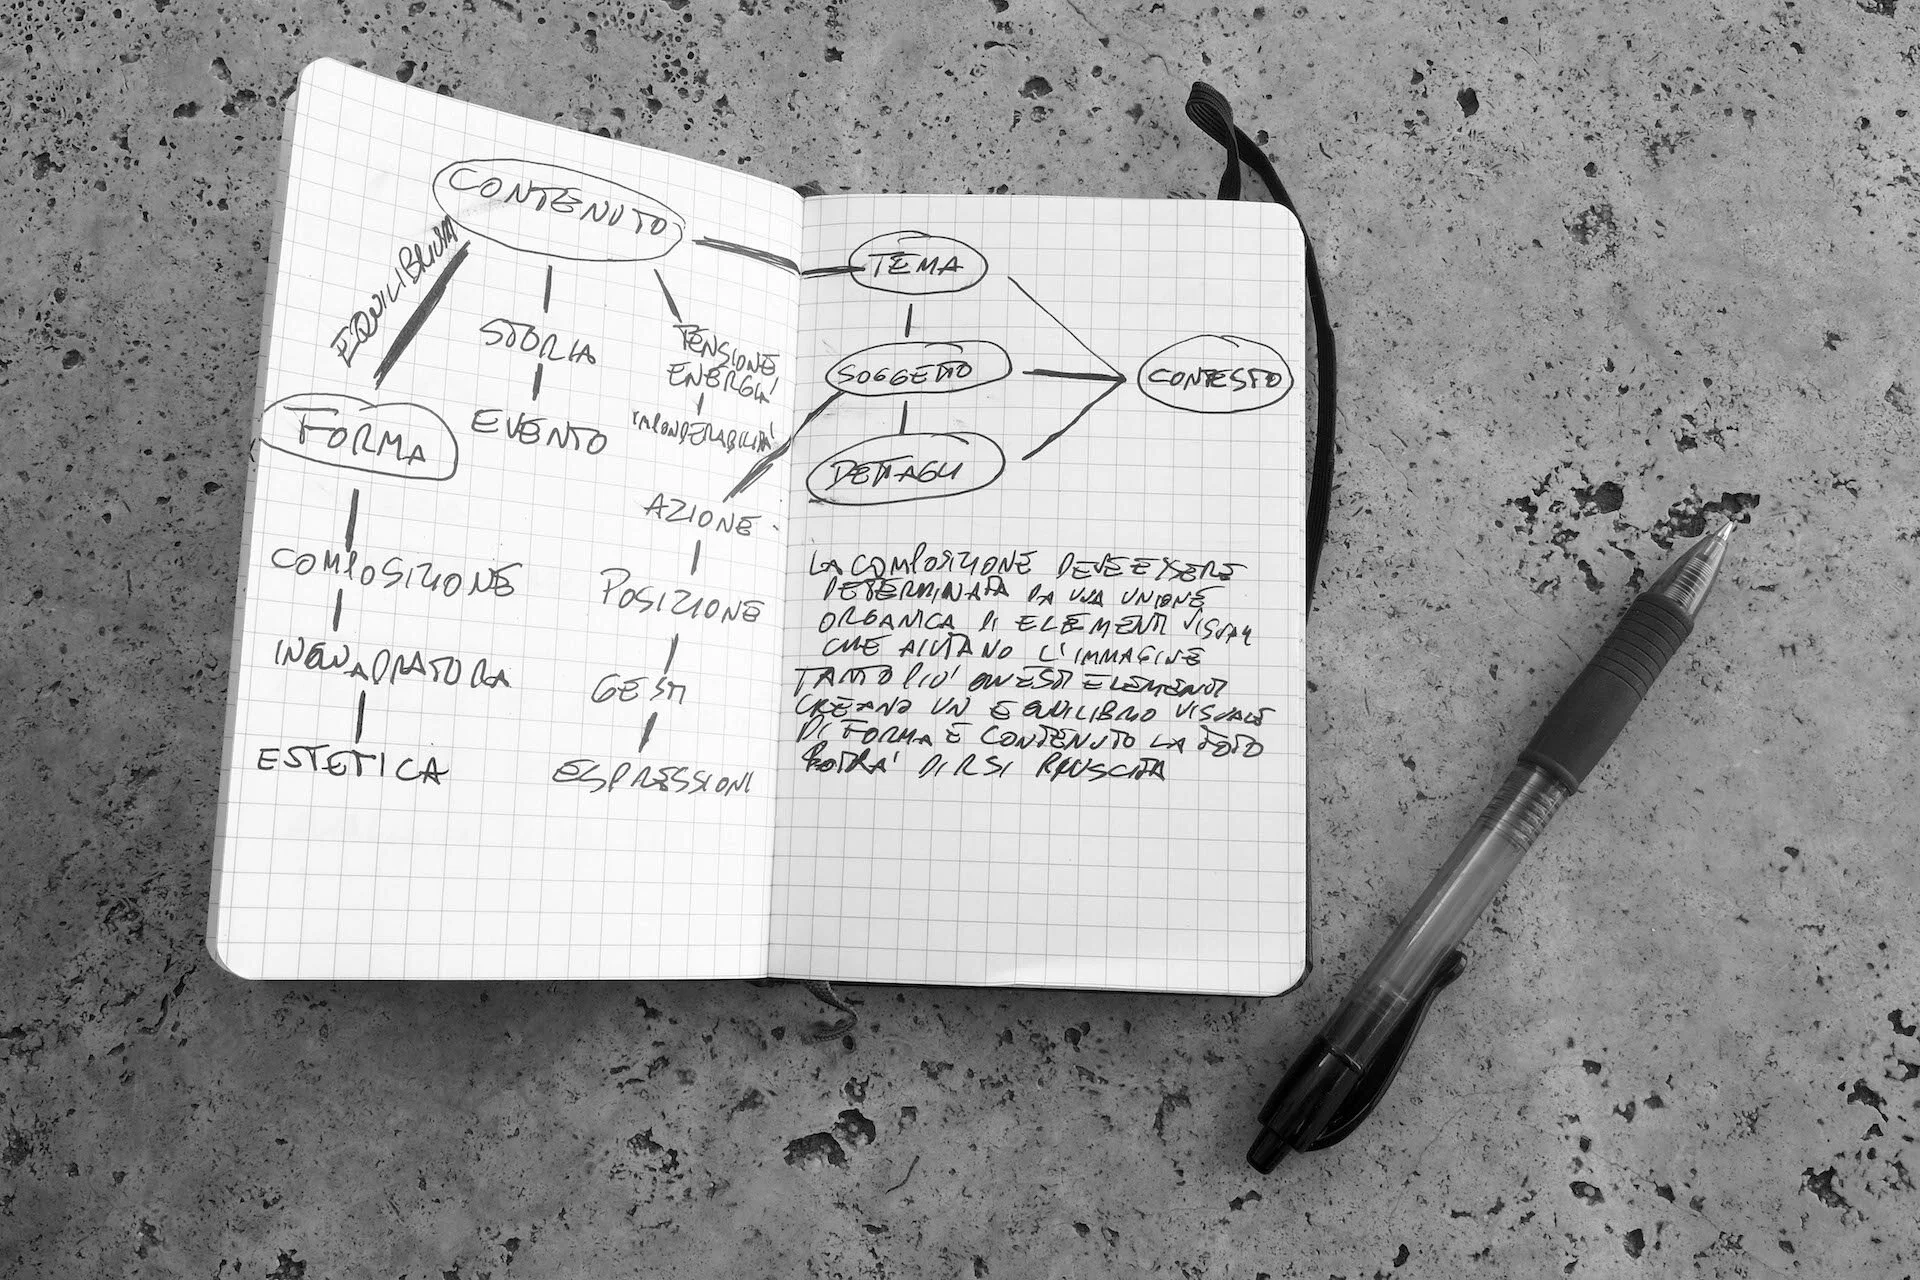 CONTENUTO
EQUILIBRIUM
STORIA
EVENTO
TENSIONE
ENERGIA
IMPONDERABILITÀ
FORMA
COMPOSIZIONE
INQUADRATURA
ESTETICA
AZIONE
POSIZIONE
GESTI
ESPRESSIONI
TEMA
SOGGETTO
DETTAGLI
CONTESTO
LA COMPOSIZIONE DEVE ESSERE
DETERMINATA DA UNA UNIONE
ORGANICA DI ELEMENTI VISUALI
CHE AIUTANO L'IMMAGINE
TANTO PIU' QUESTI ELEMENTI
CREANO UN EQUILIBRIO VISUALE
DI FORMA E CONTENUTO LA FOTO
POTRA' DIRSI RIUSCITA